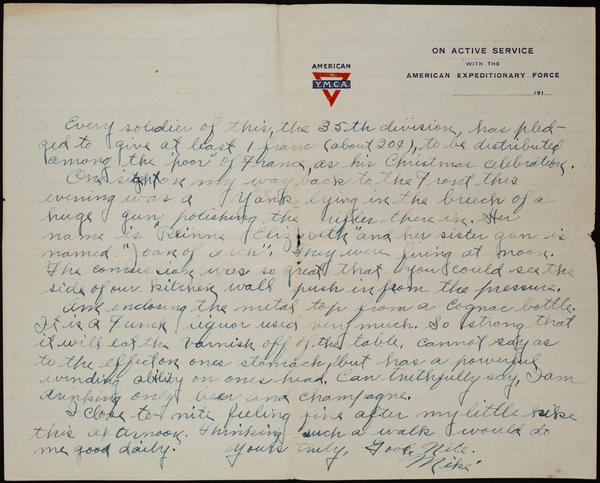 AMERICAN
Y.M.C.A.
ON ACTIVE SERVICE
WITH THE
AMERICAN EXPEDITIONARY FORCE
191
Every soldier of this, the 35th division, has pled-
ged to give at least 1 franc (about 20¢), to be distributed
among the "poor" of France, as his Christmas celebration.
One sight on my way back to the Front this
evening was a Yank lying in the breech of a
huge gun polishing the rifles there in. Her
name is "Reinne Elizabeth" and her sister gun is
named "Joan of Arch". They were firing at noon.
The concussion was so great that you could see the
side of our kitchen wall push in from the pressure.
Am enclosing the metal top from a Cognac bottle.
It is a French liquor used very much. So strong that
it will eat the varnish off of the table. Cannot say as
to the effect on ones stomach, but has a powerful
winding ability on ones head. Can truthfully say, I am
drinking only beer and champagne.
I close to-nite feeling fine after my little hike
this afternoon. Thinking such a walk would do
me good daily. Yours truly, Good Nite.
Mike